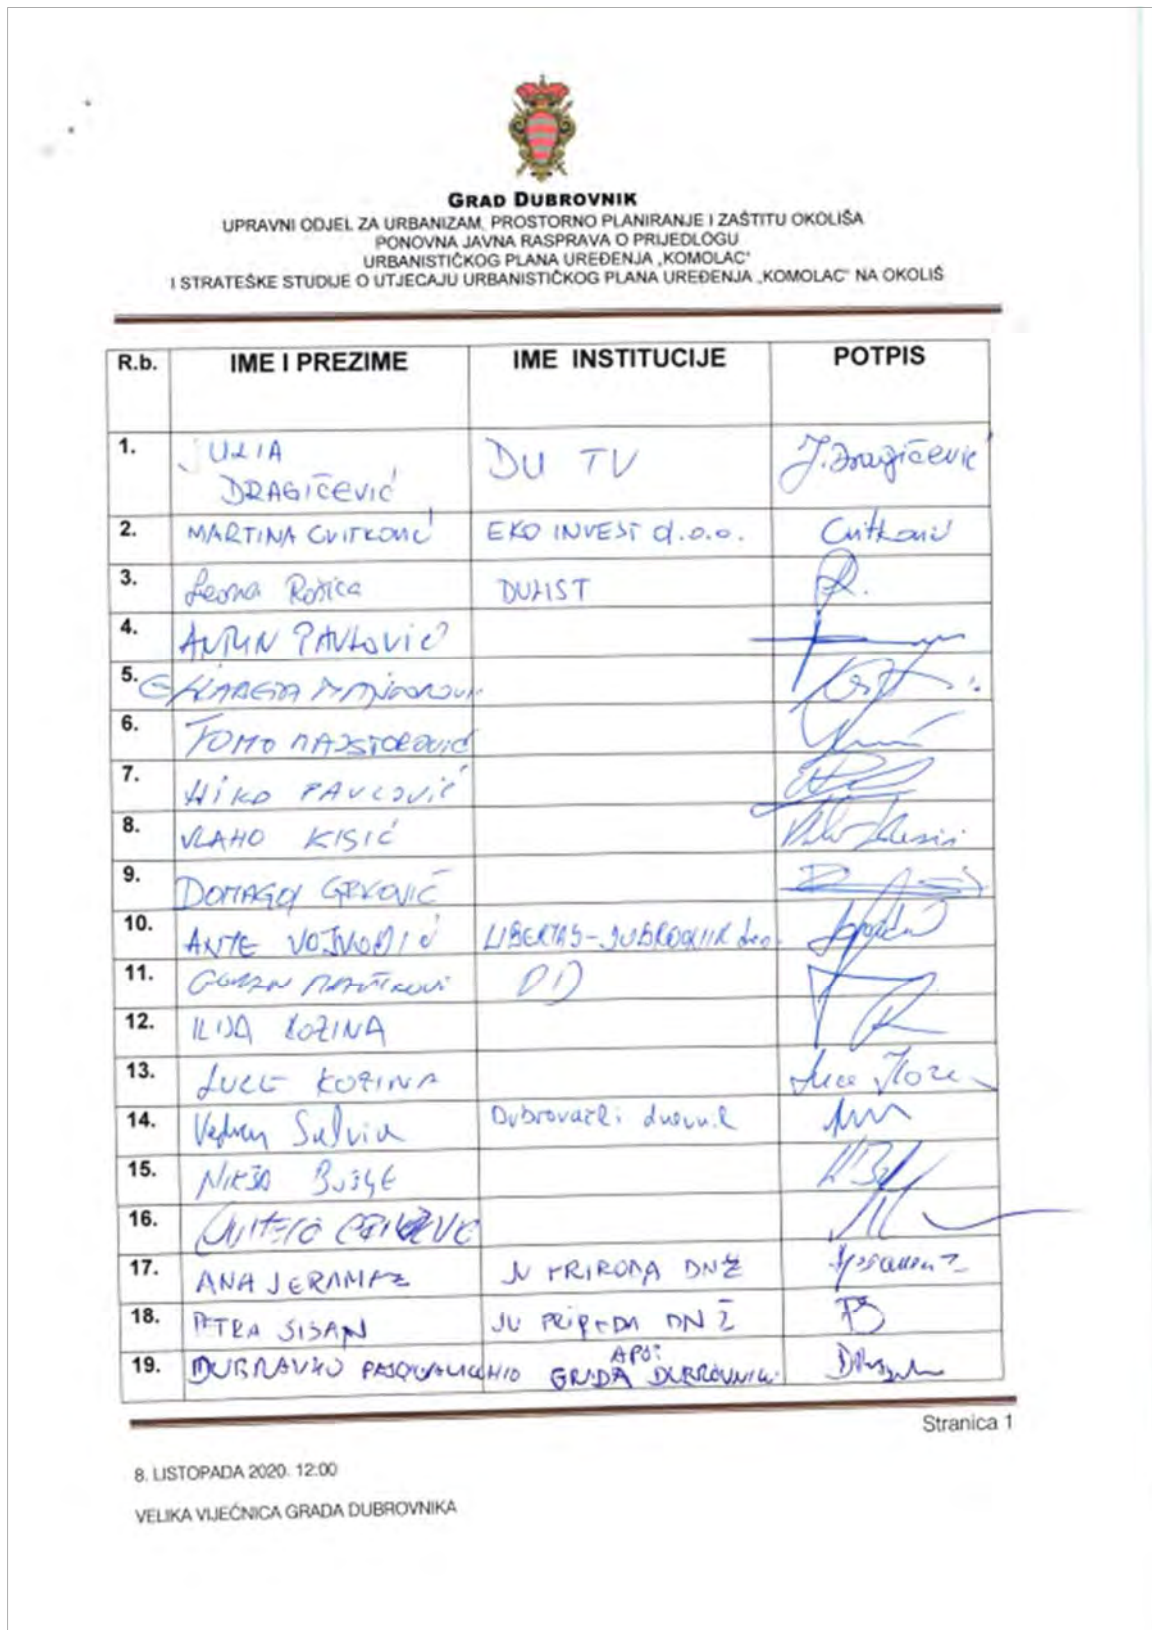 GRAD DUBROVNIK
UPRAVNI ODJEL ZA URBANIZAM, PROSTORNO PLANIRANJE I ZAŠTITU OKOLIŠA
PONOVNA JAVNA RASPRAVA O PRIJEDLOGU
URBANISTIČKOG PLANA UREĐENJA „KOMOLAC“
I STRATEŠKE STUDIJE O UTJECAJU URBANISTIČKOG PLANA UREĐENJA „KOMOLAC“ NA OKOLIŠ
R.b. IME I PREZIME IME INSTITUCIJE POTPIS
1. JULIA DU TV J. Dragičević
DRAGIČEVIĆ
2. MARTINA CVITKOVIĆ EKO INVEST d.o.o. Cvitković
3. Leona DULIST
4. ANTUN PAVLOVIĆ
5.
6. TOMO MAJSTOROVIĆ
7. NIKO PAVLOVIĆ
8. VLAHO KISIĆ
9. DOMAGOJ GRKOVIĆ
10. ANTE VOJVODIĆ LIBERTAS-DUBROVNIK d.o.o.
11. GORAN
12. ILIJA KOZINA
13. LUCE KOZINA Luce
14. Vedran Salvia Dubrovački dnevnik
15. NIKŠA
16.
17. ANA JERAMAZ JU PRIRODA DNŽ
18. PETRA SISAN JU PRIRODA DNŽ
19. DUBRAVKO PASQUALICCHIO GRADA DUBROVNIKA
Stranica 1
8. LISTOPADA 2020. 12:00
VELIKA VIJEĆNICA GRADA DUBROVNIKA